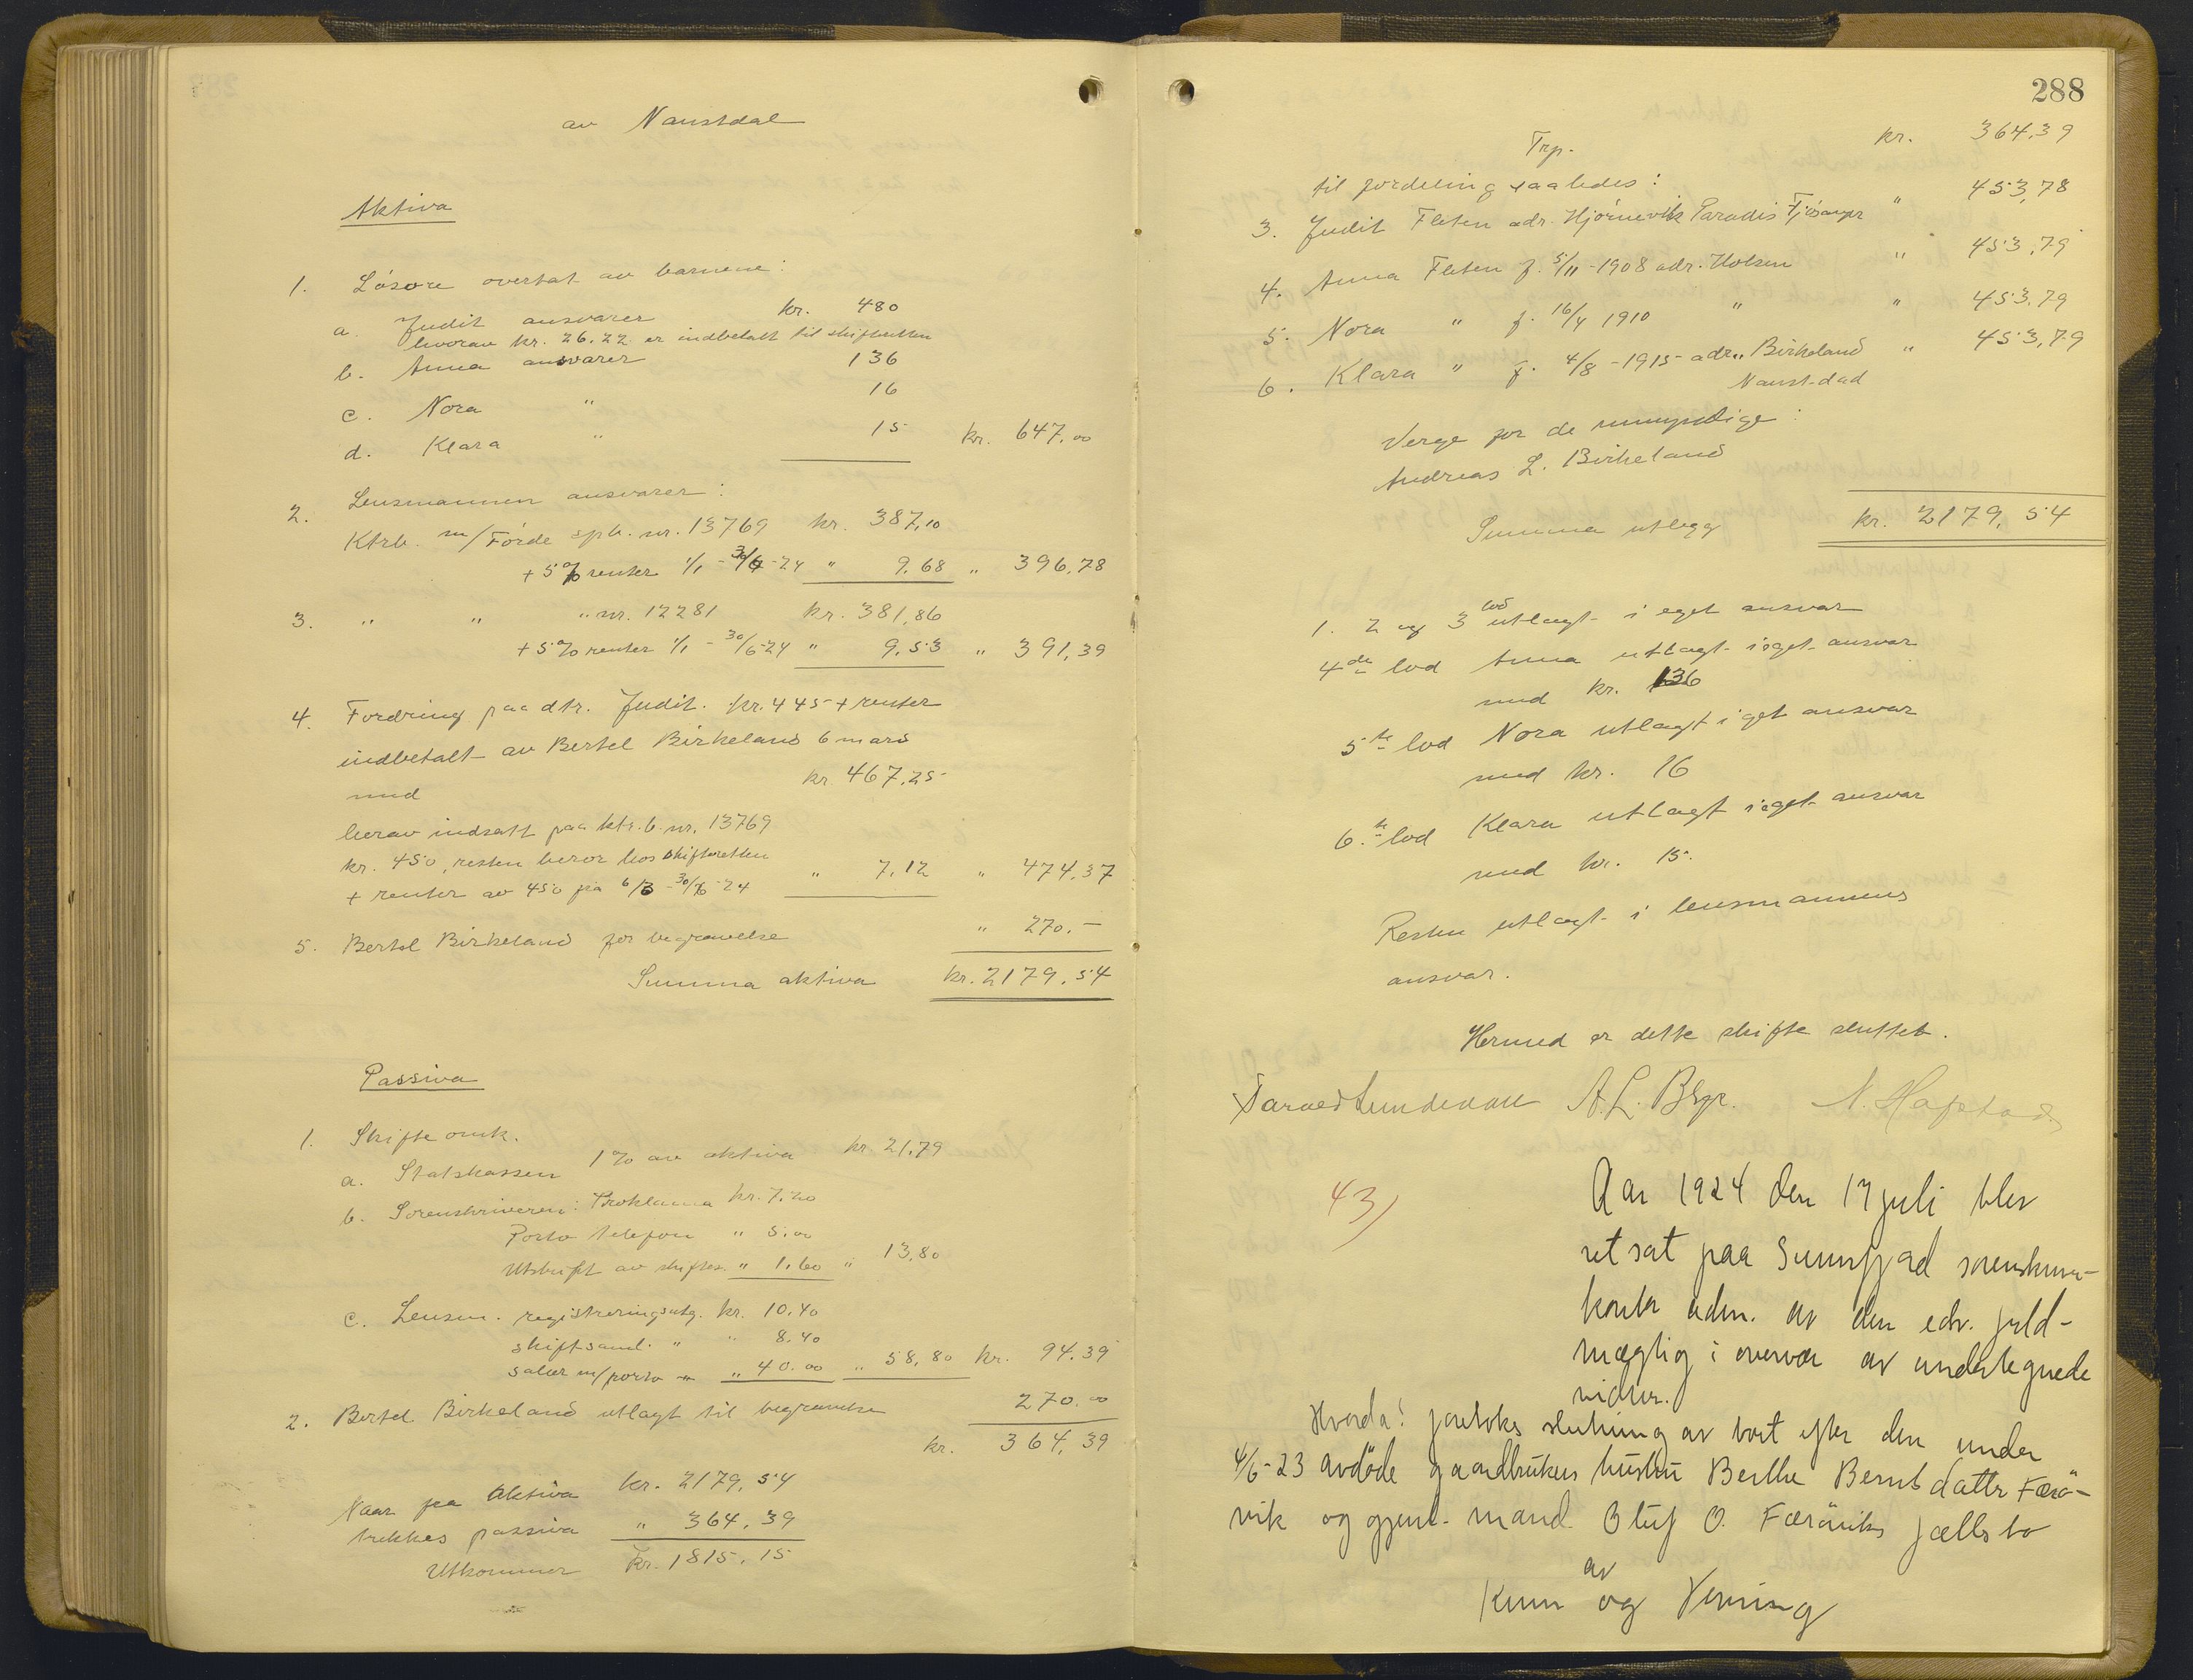 av Naustdal
Aktiva
1. Løsøre overtat av barnene:
a. Judit ansvarer kr. 480
hvorav kr. 26.22 er indbetalt til skifteretten
b. Anna ansvarer 136
c. Nora " 16
d. Klara " 15 kr. 647.00
2. Lensmannen ansvarer:
Ktrb. m/Førde spb. nr. 13769 kr. 387,10
+ 5% renter 1/1 - 30/6-24 " 9.68 " 396,78
3. " " " nr. 12281 kr. 381,86
+ 5% renter 1/1 - 30/6-24 " 9,53 " 391,39
4. Fordring paa dtr. Judit. kr. 445 + renter
indbetalt av Bertel Birkeland 6 mars
med kr 467.25
herav indsatt paa ktr.b. nr. 13769
kr. 450, resten beror hos skifteretten
+ renter av 450 fra 6/3 - 30/6-24 " 7,12 " 474.37
5. Bertel Birkeland for begravelse " 270.-
Summa aktiva kr. 2179.54
Passiva
1. Skifteomk.
a. Statskassen 1% av aktiva kr. 21,79
b. Sorenskriveren: Proklama kr. 7.20
Porto telefon " 5.00
Utskrift av skiftes. " 1.60 " 13,80
c. Lensm. registreringsutg. kr. 10.40
skiftsaml. " " 8.40
salær m/porto " 40.00 " 58,80 kr. 94.39
2. Bertel Birkeland utlagt til begravelse 270.00
kr. 364,39
Naar fra Aktiva kr. 2179,54
trekkes passiva " 364,39
Utkommer kr. 1815,15
288
Trp. kr. 364.39
til fordeling saaledes:
3. Judit Fleten adr. Hjørnevik Paradis Fjøsanger " 453,78
4. Anna Fleten f. 5/11-1908 adr. Holsen " 453,79
5. Nora " f. 16/4 1910 " " 453,79
6. Klara " f. 4/8-1915 adr. Birkeland " 453,79
Naustdad
Verge for de umyndige:
Andreas L. Birkeland
Summa utlegg kr. 2179,54
1. 2 og 3 lod utlagt i eget ansvar
4de lod Anna utlagt i eget ansvar
med kr. 136
5te lod Nora utlagt i get ansvar
med kr. 16
6te lod Klara utlagt i eget ansvar
med kr. 15.
Resten utlagt i lensmannens
ansvar.
Hermed er dette skifte sluttet.
A. L. N. Hafstad.
43) Aar 1924 den 17 juli blev
ret sat paa Sunnfjord sorenskriver-
kontor adm. av den edv. fuld-
mægtig i overvær av undertegnede
vidner.
Hvorda: foretokes slutning av boet efter den under
4/6-23 avdøde gaardbrukers hustru Berthe Berntsdatter Færø-
vik og gjenl. mand Oluf O. Færøviks fællsbo
av
Kinn og Verning